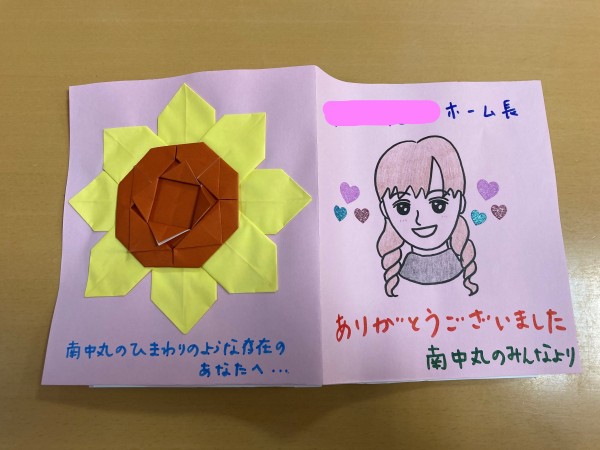 南中丸のひまわりのような存在の
あなたへ...
ホーム長
ありがとうございました
南中丸のみんなより